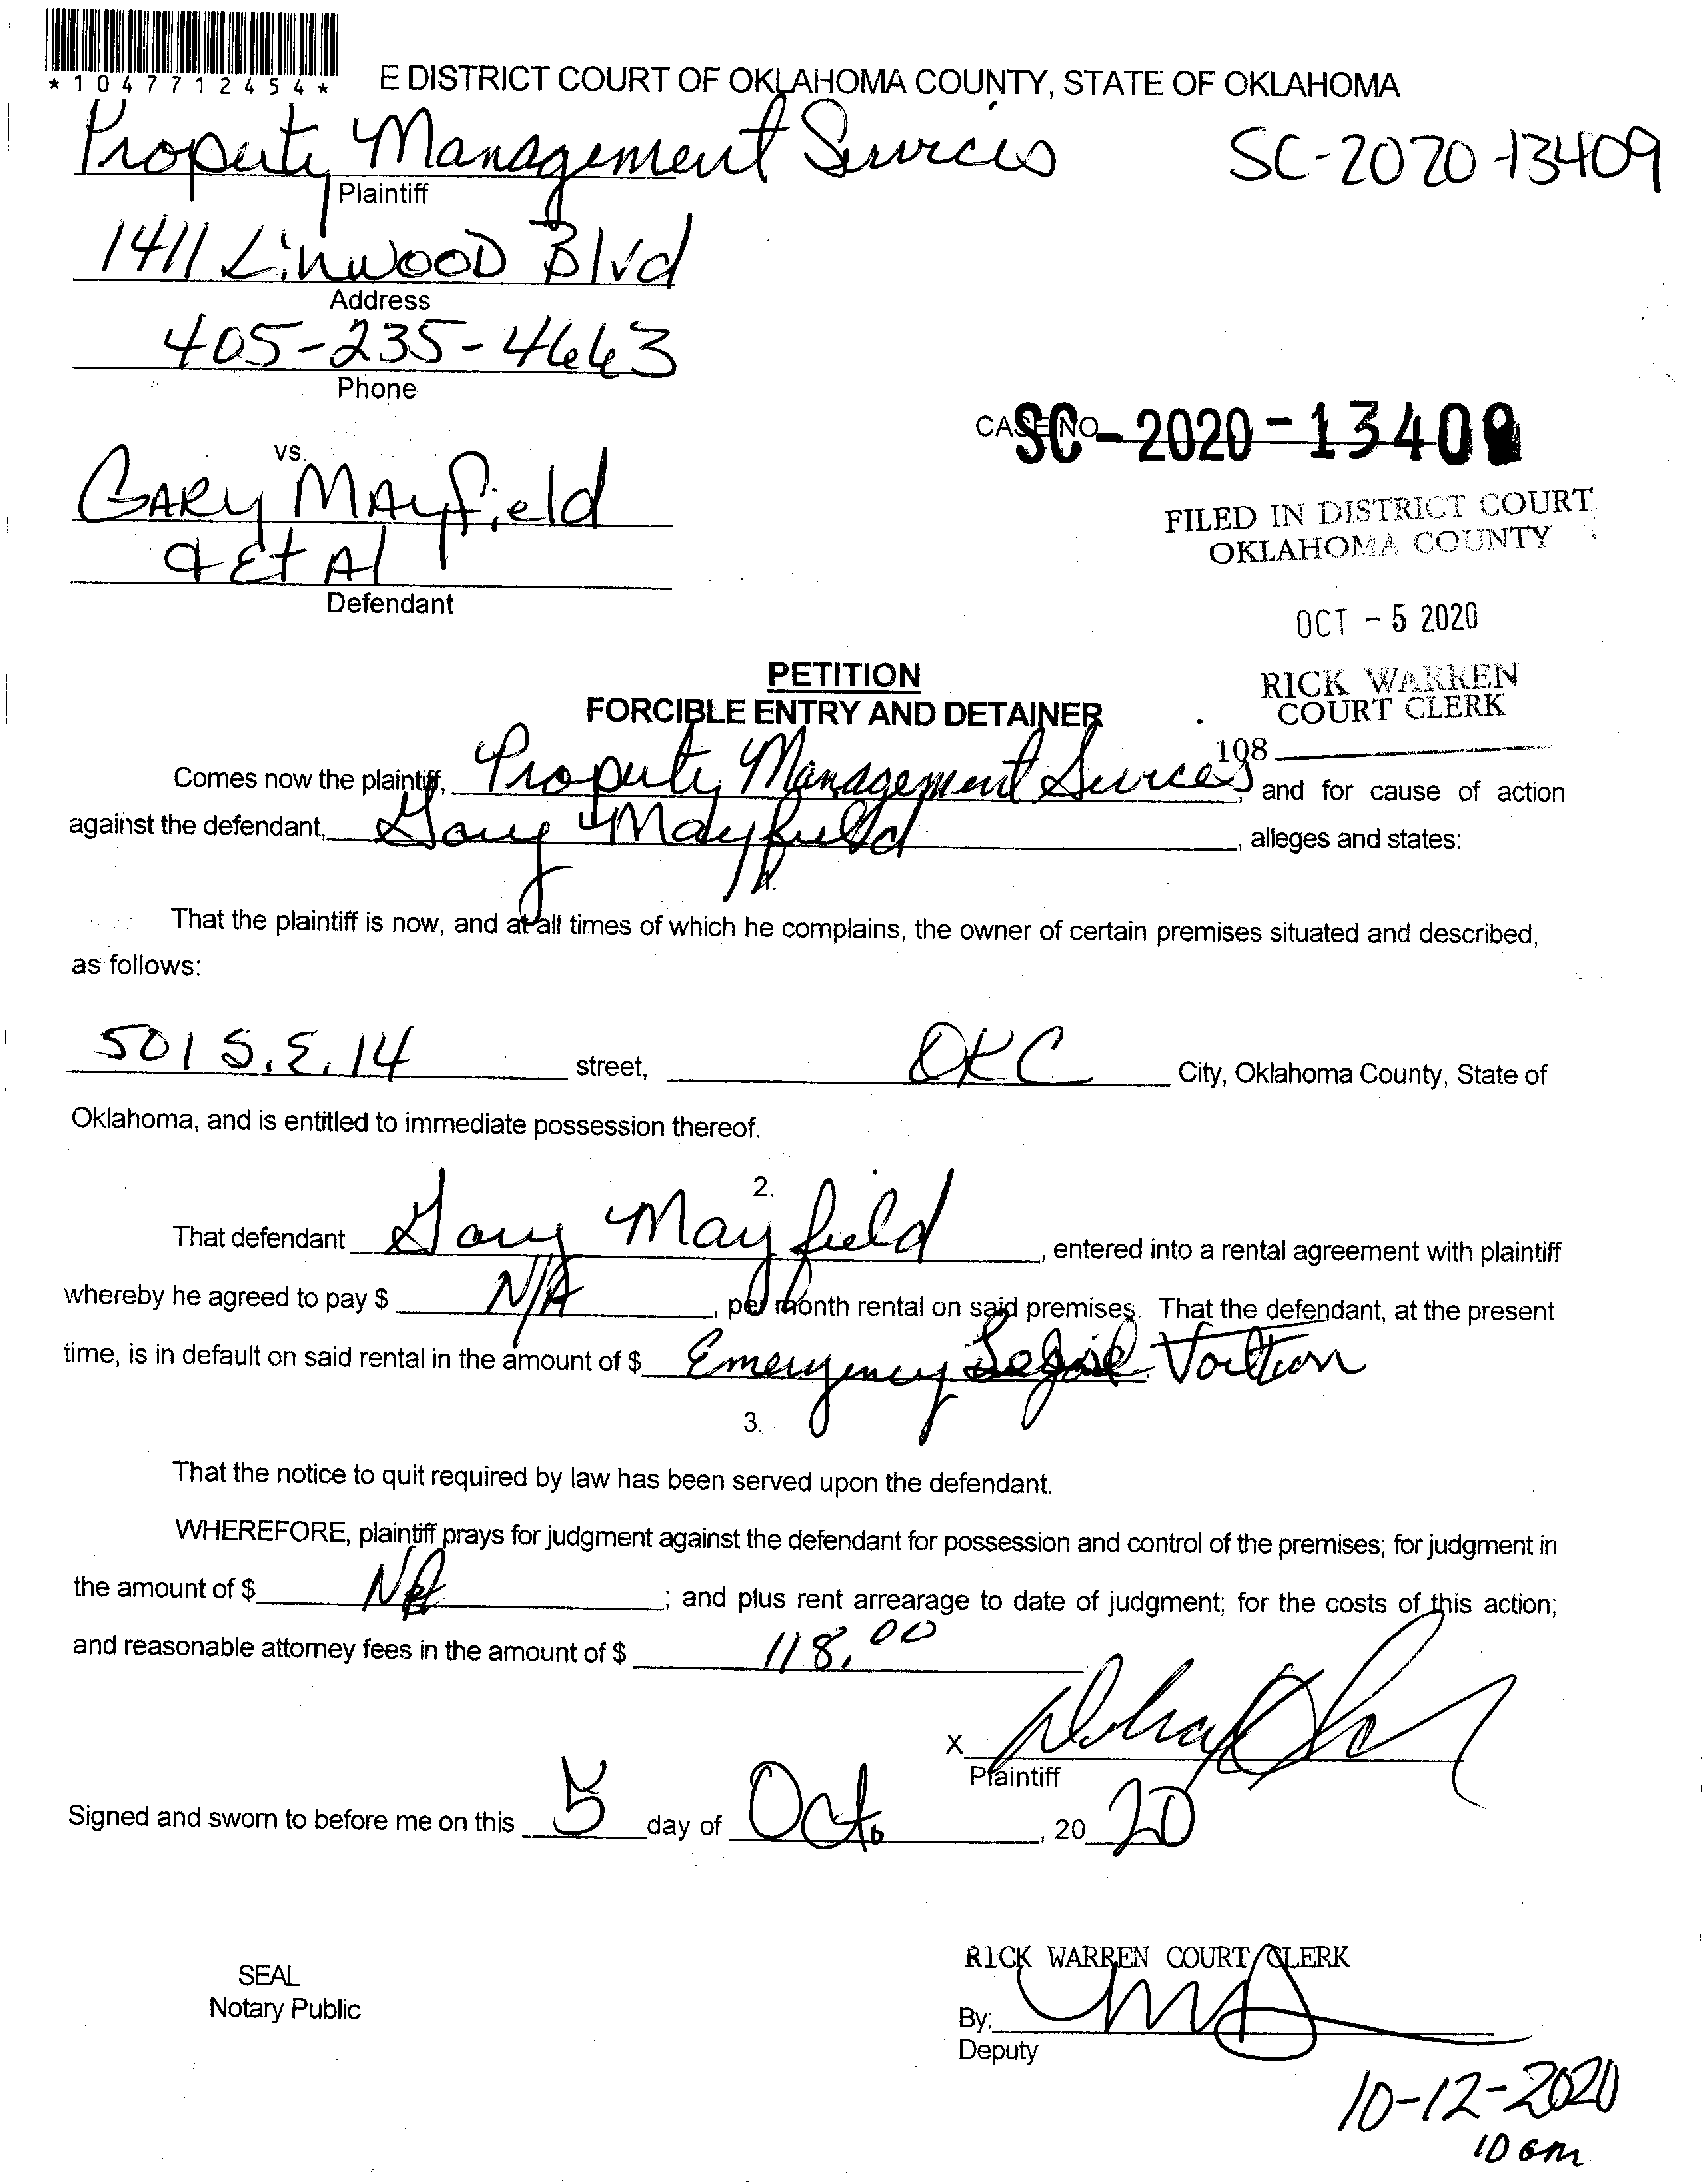 *1047712454*
E DISTRICT COURT OF OKLAHOMA COUNTY, STATE OF OKLAHOMA
Property Management Services SC-2020-13409
Plaintiff
1411 Linwood Blvd
Address
405-235-4663
Phone
CASE NO. SC-2020-13409
vs.
Gary Mayfield
& Et Al
Defendant
FILED IN DISTRICT COURT
OKLAHOMA COUNTY
OCT - 5 2020
RICK WARREN
COURT CLERK
108
PETITION
FORCIBLE ENTRY AND DETAINER
Comes now the plaintiff, Property Management Services, and for cause of action
against the defendant, Gary Mayfield, alleges and states:
That the plaintiff is now, and at all times of which he complains, the owner of certain premises situated and described,
as follows:
501 S.E. 14 street, OKC City, Oklahoma County, State of
Oklahoma, and is entitled to immediate possession thereof.
2.
That defendant Gary Mayfield, entered into a rental agreement with plaintiff
whereby he agreed to pay $ N/A, per month rental on said premises. That the defendant, at the present
time, is in default on said rental in the amount of $ Emergency
3.
That the notice to quit required by law has been served upon the defendant.
WHEREFORE, plaintiff prays for judgment against the defendant for possession and control of the premises; for judgment in
the amount of $ NA; and plus rent arrearage to date of judgment; for the costs of this action;
and reasonable attorney fees in the amount of $ 118.00
X
Plaintiff
Signed and sworn to before me on this 5 day of Oct., 20 20
SEAL
Notary Public
RICK WARREN COURT CLERK
By:
Deputy
10-12-2020
10 am